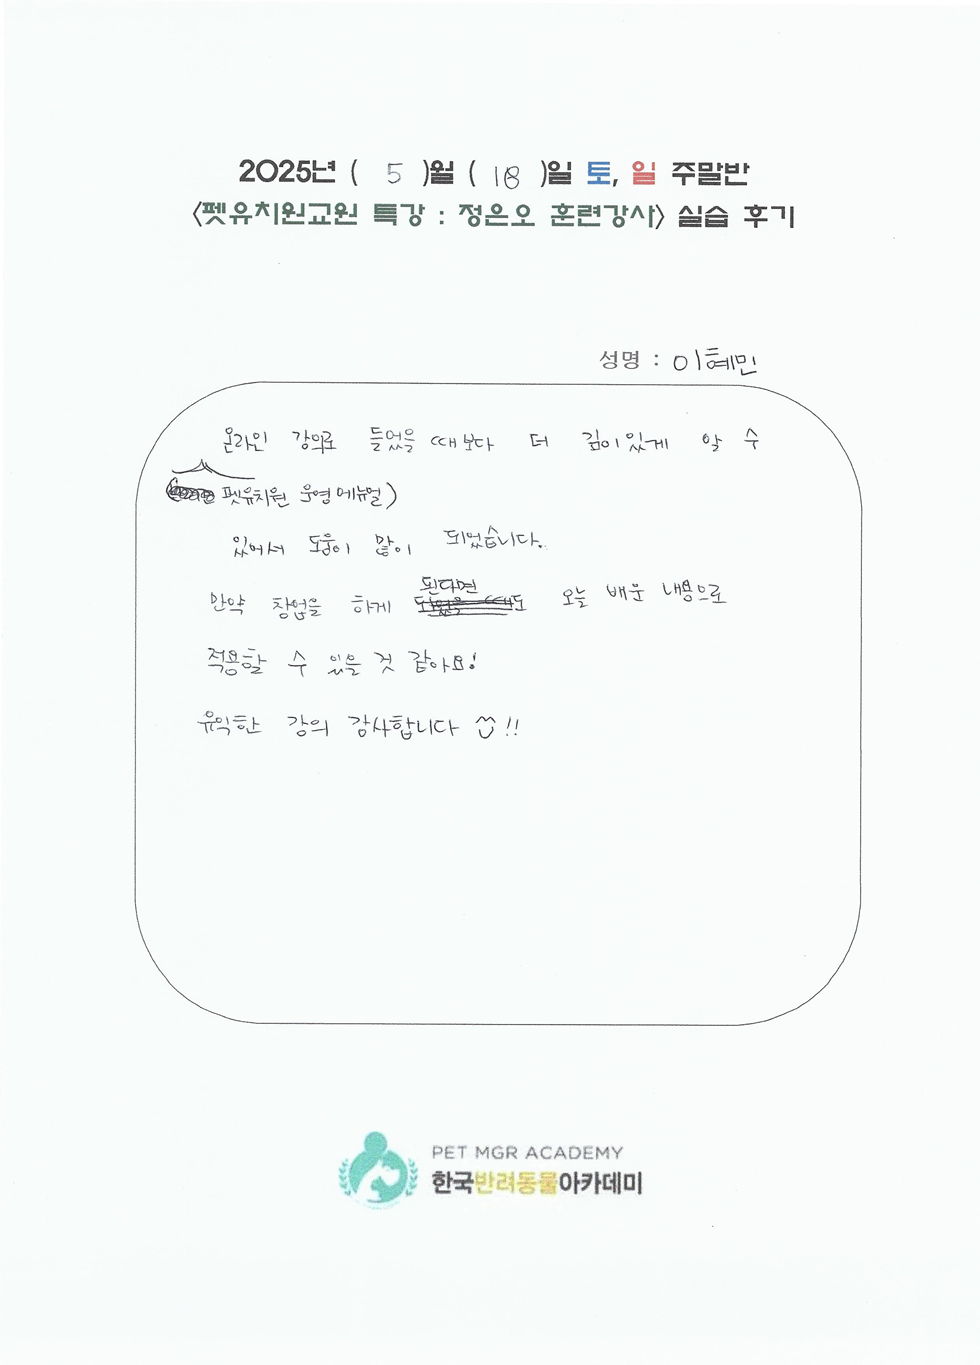 2025년 ( 5 )월 ( 18 )일 토, 일 주말반
<펫유치원교원 특강 : 정은오 훈련강사> 실습 후기
성명 : 이혜민
온라인 강의로 들었을 때보다 더 깊이있게 알 수
( 펫유치원 운영메뉴얼)
있어서 도움이 많이 되었습니다.
만약 창업을 하게 된다면 오늘 배운 내용으로
적용할 수 있을 것 같아요!
유익한 강의 감사합니다 !!
PET MGR ACADEMY
한국반려동물아카데미